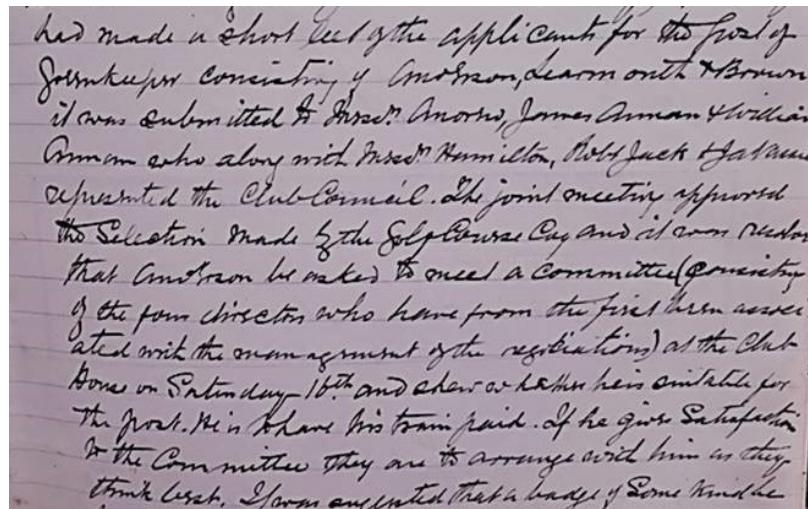 had made a short leet of the applicants for the post of
Greenkeeper consisting of Anderson, Learmonth & Brown
it was submitted to Messrs. James Annan & William
Annan who along with Messrs Hamilton, Robt Jack &
represented the Club Council. The joint meeting approved
the Selection made by the Golf Course Coy and it was
that Anderson be asked to meet a committee (consisting
of the four directors who have from the first been associ
ated with the management of the negotiations) at the Club
House on Saturday 16th and shew whether he is suitable for
the post. He is to have his train paid. If he gives Satisfaction
to the Committee they are to arrange with him as they
think best. It was suggested that a badge of Some Kind be